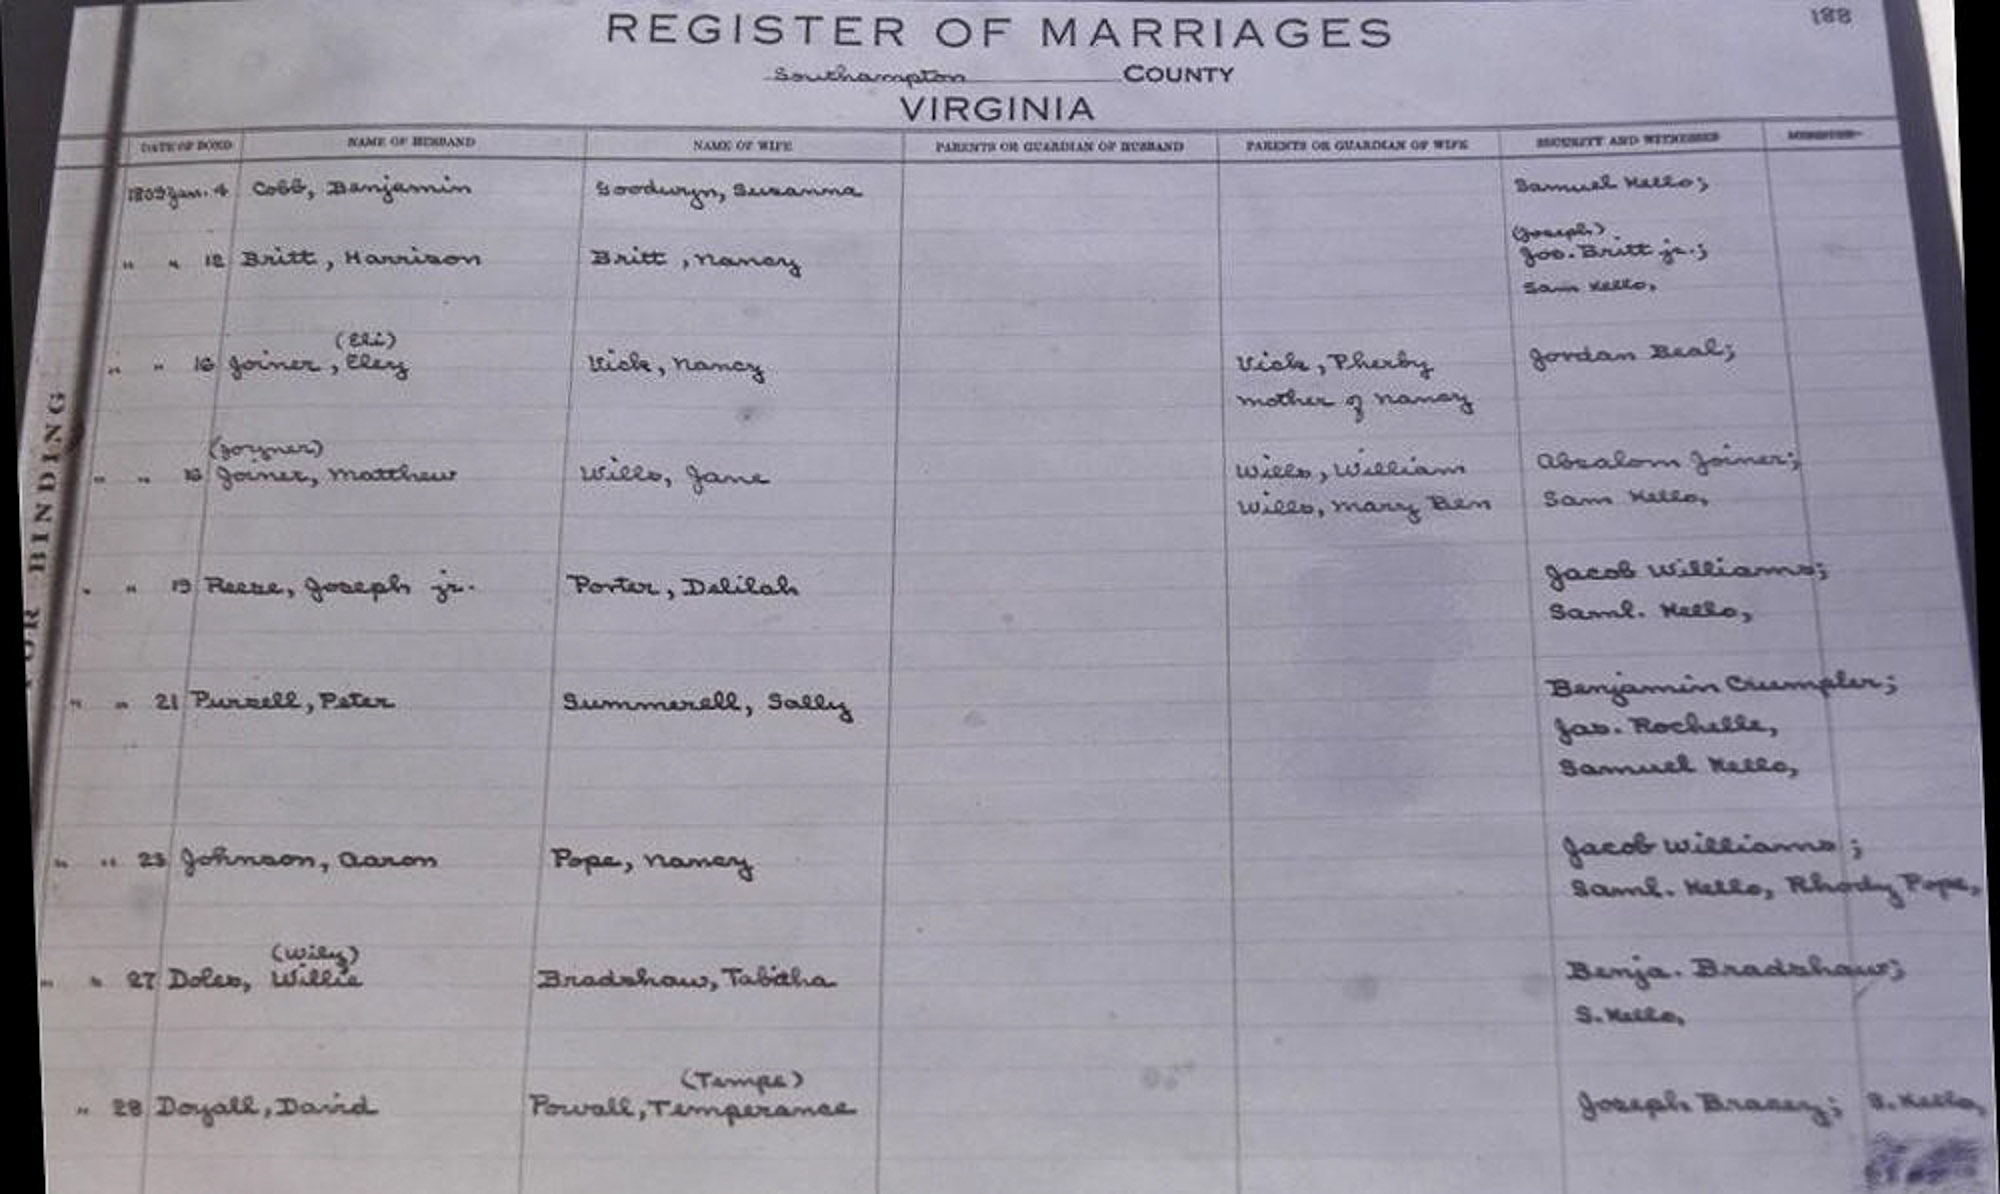 188
REGISTER OF MARRIAGES
Southampton COUNTY
VIRGINIA
DATE OF BOND NAME OF HUSBAND NAME OF WIFE PARENTS OR GUARDIAN OF HUSBAND PARENTS OR GUARDIAN OF WIFE SECURITY AND WITNESSES MINISTER
1809 Jan. 4 Cobb, Benjamin Goodwyn, Susanna Samuel Kello;
(Joseph)
" " 12 Britt, Harrison Britt, Nancy Jos. Britt jr.;
Sam Kello,
(Eli)
" " 16 Joiner, Eley Vick, Nancy Vick, Pherby Jordan Beal;
mother of Nancy
(Joyner)
" " 16 Joiner, Matthew Wills, Jane Wills, William Absalom Joiner;
Wills, Mary Ben Sam Kello,
" " 19 Reese, Joseph jr. Porter, Delilah Jacob Williams;
Saml. Kello,
" " 21 Purzell, Peter Summerell, Sally Benjamin Crumpler;
Jas. Rochelle,
Samuel Kello,
" " 23 Johnson, Aaron Pope, Nancy Jacob Williams;
Saml. Kello, Rhody Pope,
(Wily)
" " 27 Doles, Willie Bradshaw, Tabitha Benja. Bradshaw;
S. Kello,
(Tempe)
" 28 Doyall, David Powall, Temperance Joseph Bracey; S. Kello,
FOR BINDING